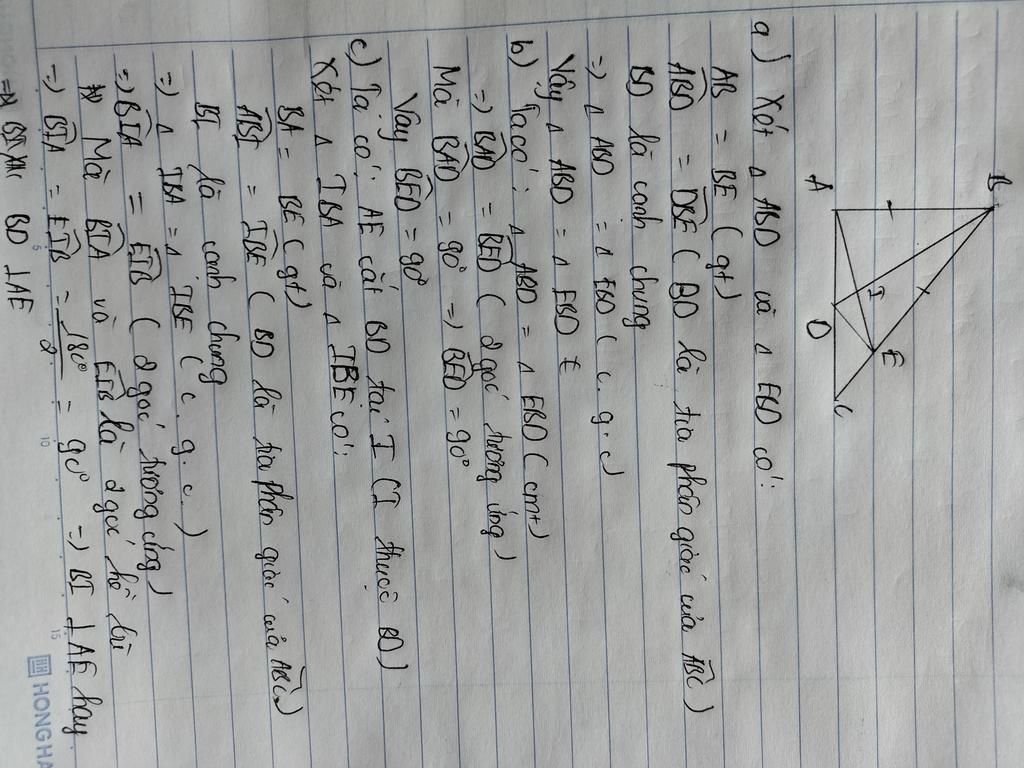 B
A
I
E
D
C
a) Xét △ ABD và △ EBD có:
AB = BE (gt)
ABD = DBE (BD là tia phân giác của ABC)
BD là cạnh chung
=> △ ABD = △ EBD (c.g.c)
Vậy △ ABD = △ EBD
b) Ta có: △ ABD = △ EBD (cmt)
=> BAD = BED (2 góc tương ứng)
Mà BAD = 90° => BED = 90°
Vậy BED = 90°
c) Ta có: AE cắt BD tại I (I thuộc BD)
Xét △ IBA và △ IBE có:
BA = BE (gt)
ABI = IBE (BD là tia phân giác của ABC)
BI là cạnh chung
=> △ IBA = △ IBE (c.g.c)
=> BIA = EIB (2 góc tương ứng)
Mà BIA và EIB là 2 góc kề bù
=> BIA = EIB = 180°/2 = 90° => BI ⊥ AE hay
BD ⊥ AE
5 10 15
HONGHA